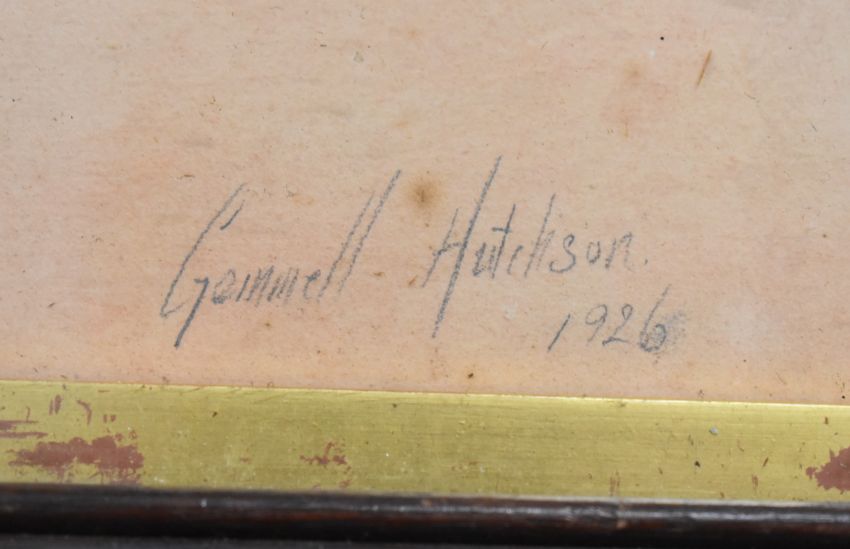 Gemmell Hutchison.
1926